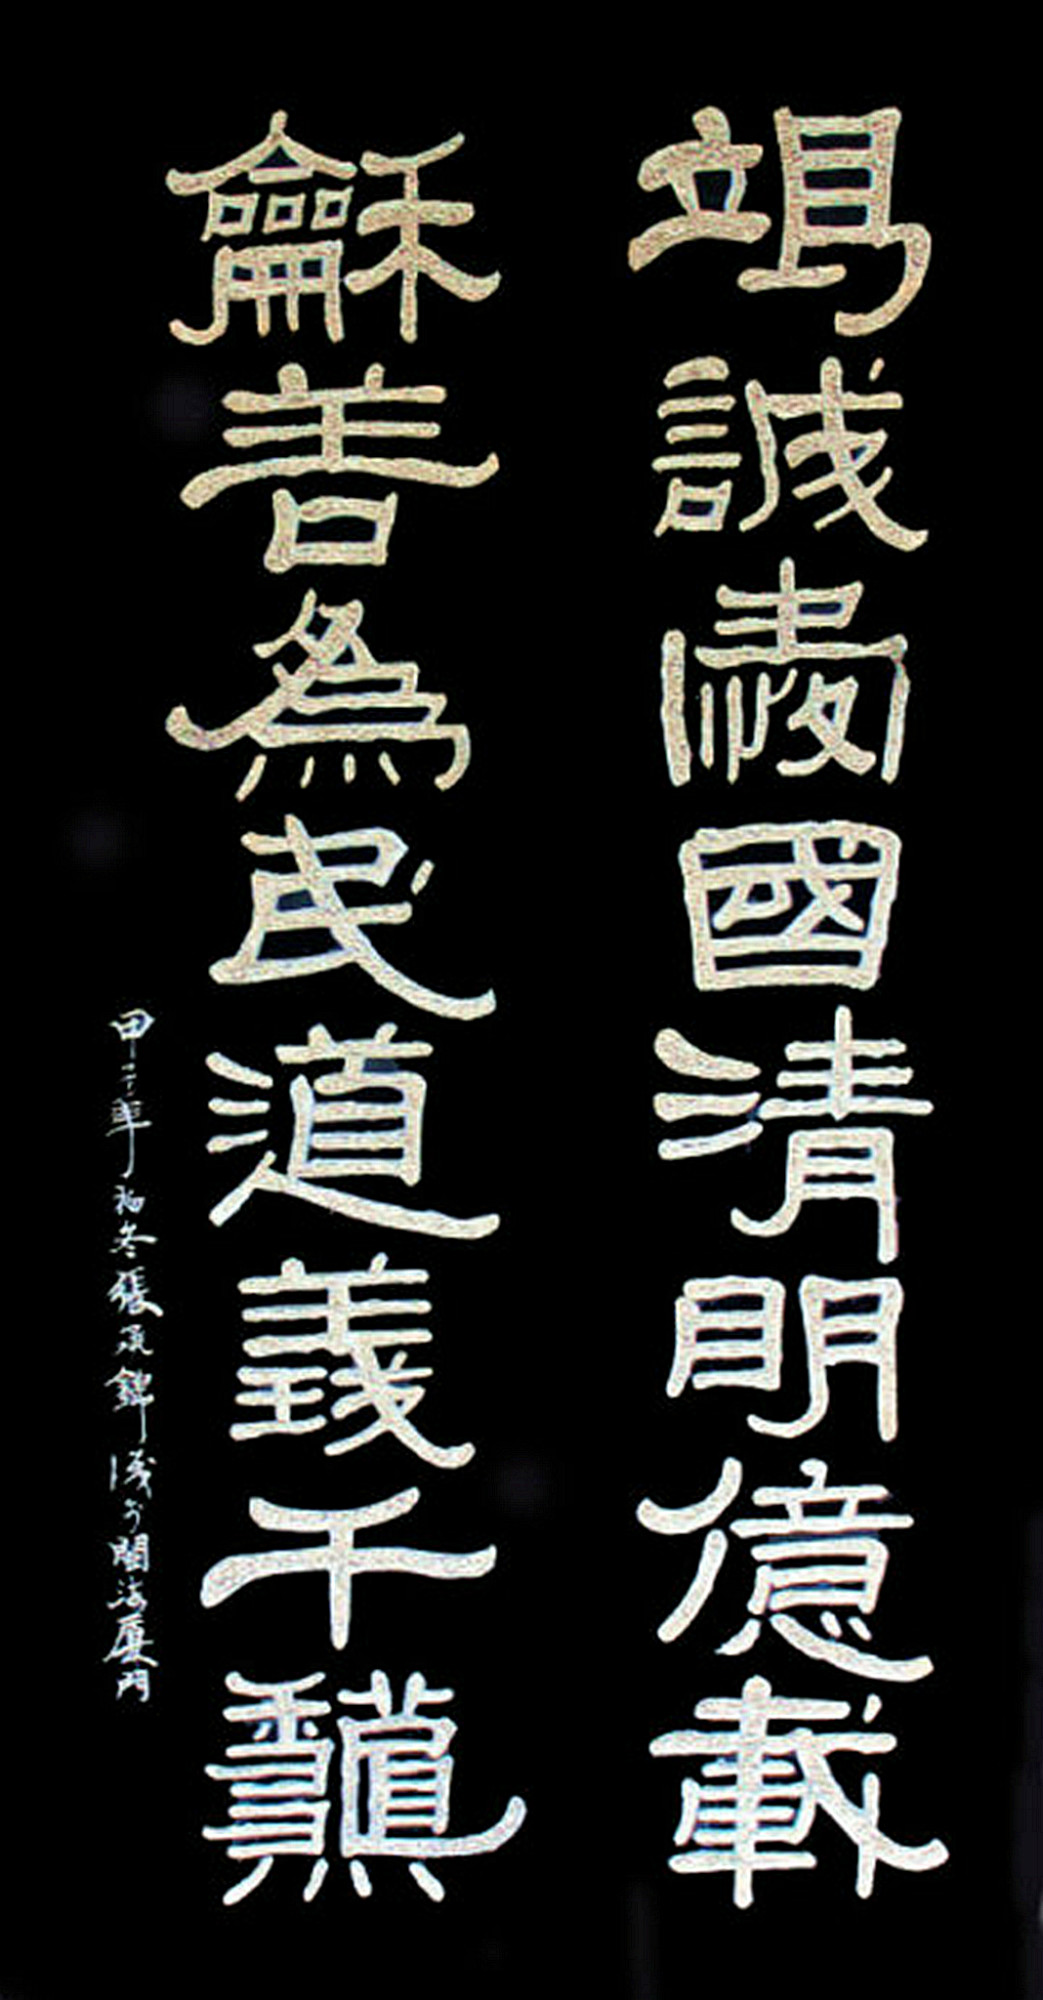 竭誠肅國清明億載
龢善為民道義千龝
甲年初冬張承錦於閩海廈門